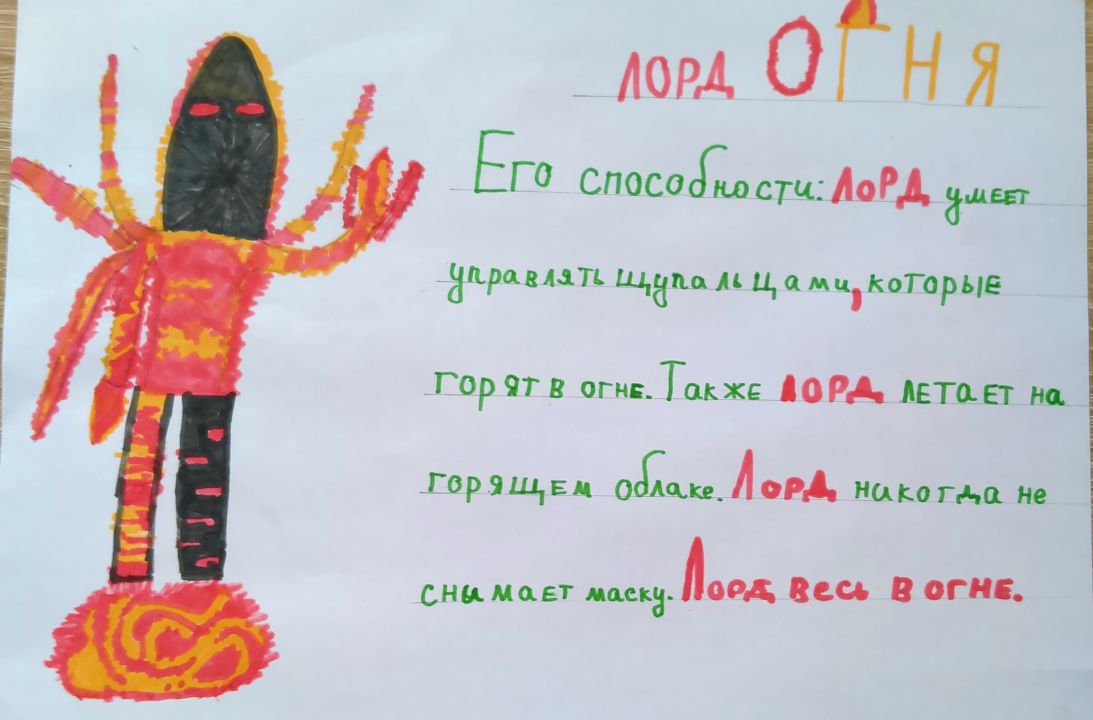 ЛОРД ОГНЯ
Его способности: ЛОРД умеет
управлять щупальцами, которые
горят в огне. Также ЛОРД летает на
горящем облаке. Лорд никогда не
снимает маску. Лорд весь в огне.